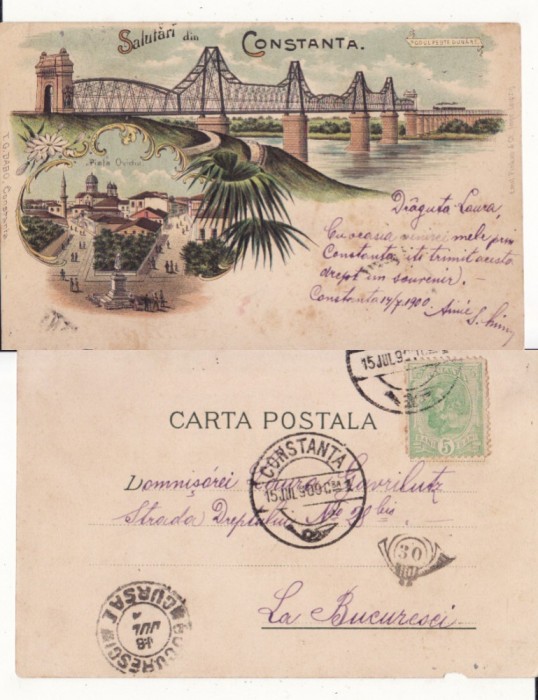 Salutări din CONSTANTA.
PODUL PESTE DUNĂRE
Piața Ovidiu
Drăguță Laura,
Cu ocasia venirei mele prin
Constanța iți trimit acesta
drept un souvenir. –
Constanta 14/7 1900.
CARTA POSTALA
5
15 JUL 900
CONSTANTA
15 JUL 900
Domnișórei Laura Gavrilutz
Strada Dreptului No 20 bis
30
La Bucuresci
BUCURESCI
CURSA I
18 JUL